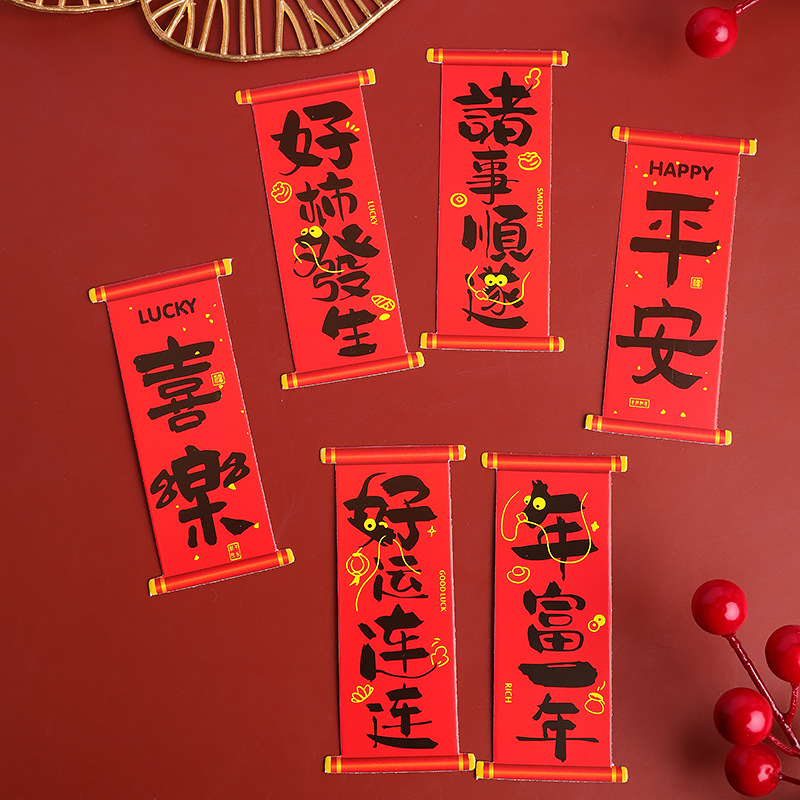 好柿發生
LUCKY
諸事順遂
SMOOTHLY
HAPPY
平安
LUCKY
喜樂
好运连连
GOOD LUCK
年富一年
RICH